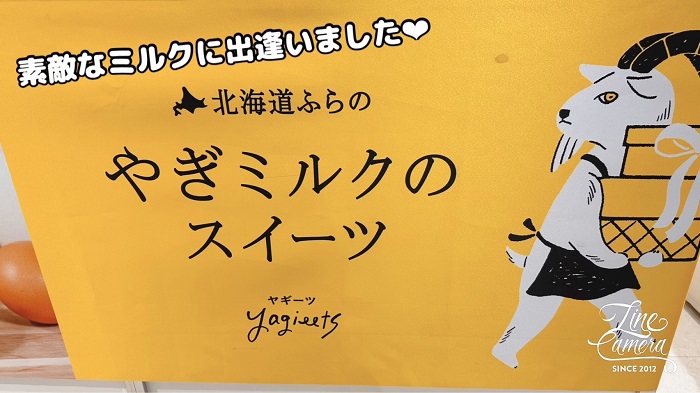 素敵なミルクに出逢いました❤
北海道ふらの
やぎミルクの
スイーツ
ヤギーツ
yagieets
Line
Camera
SINCE 2012